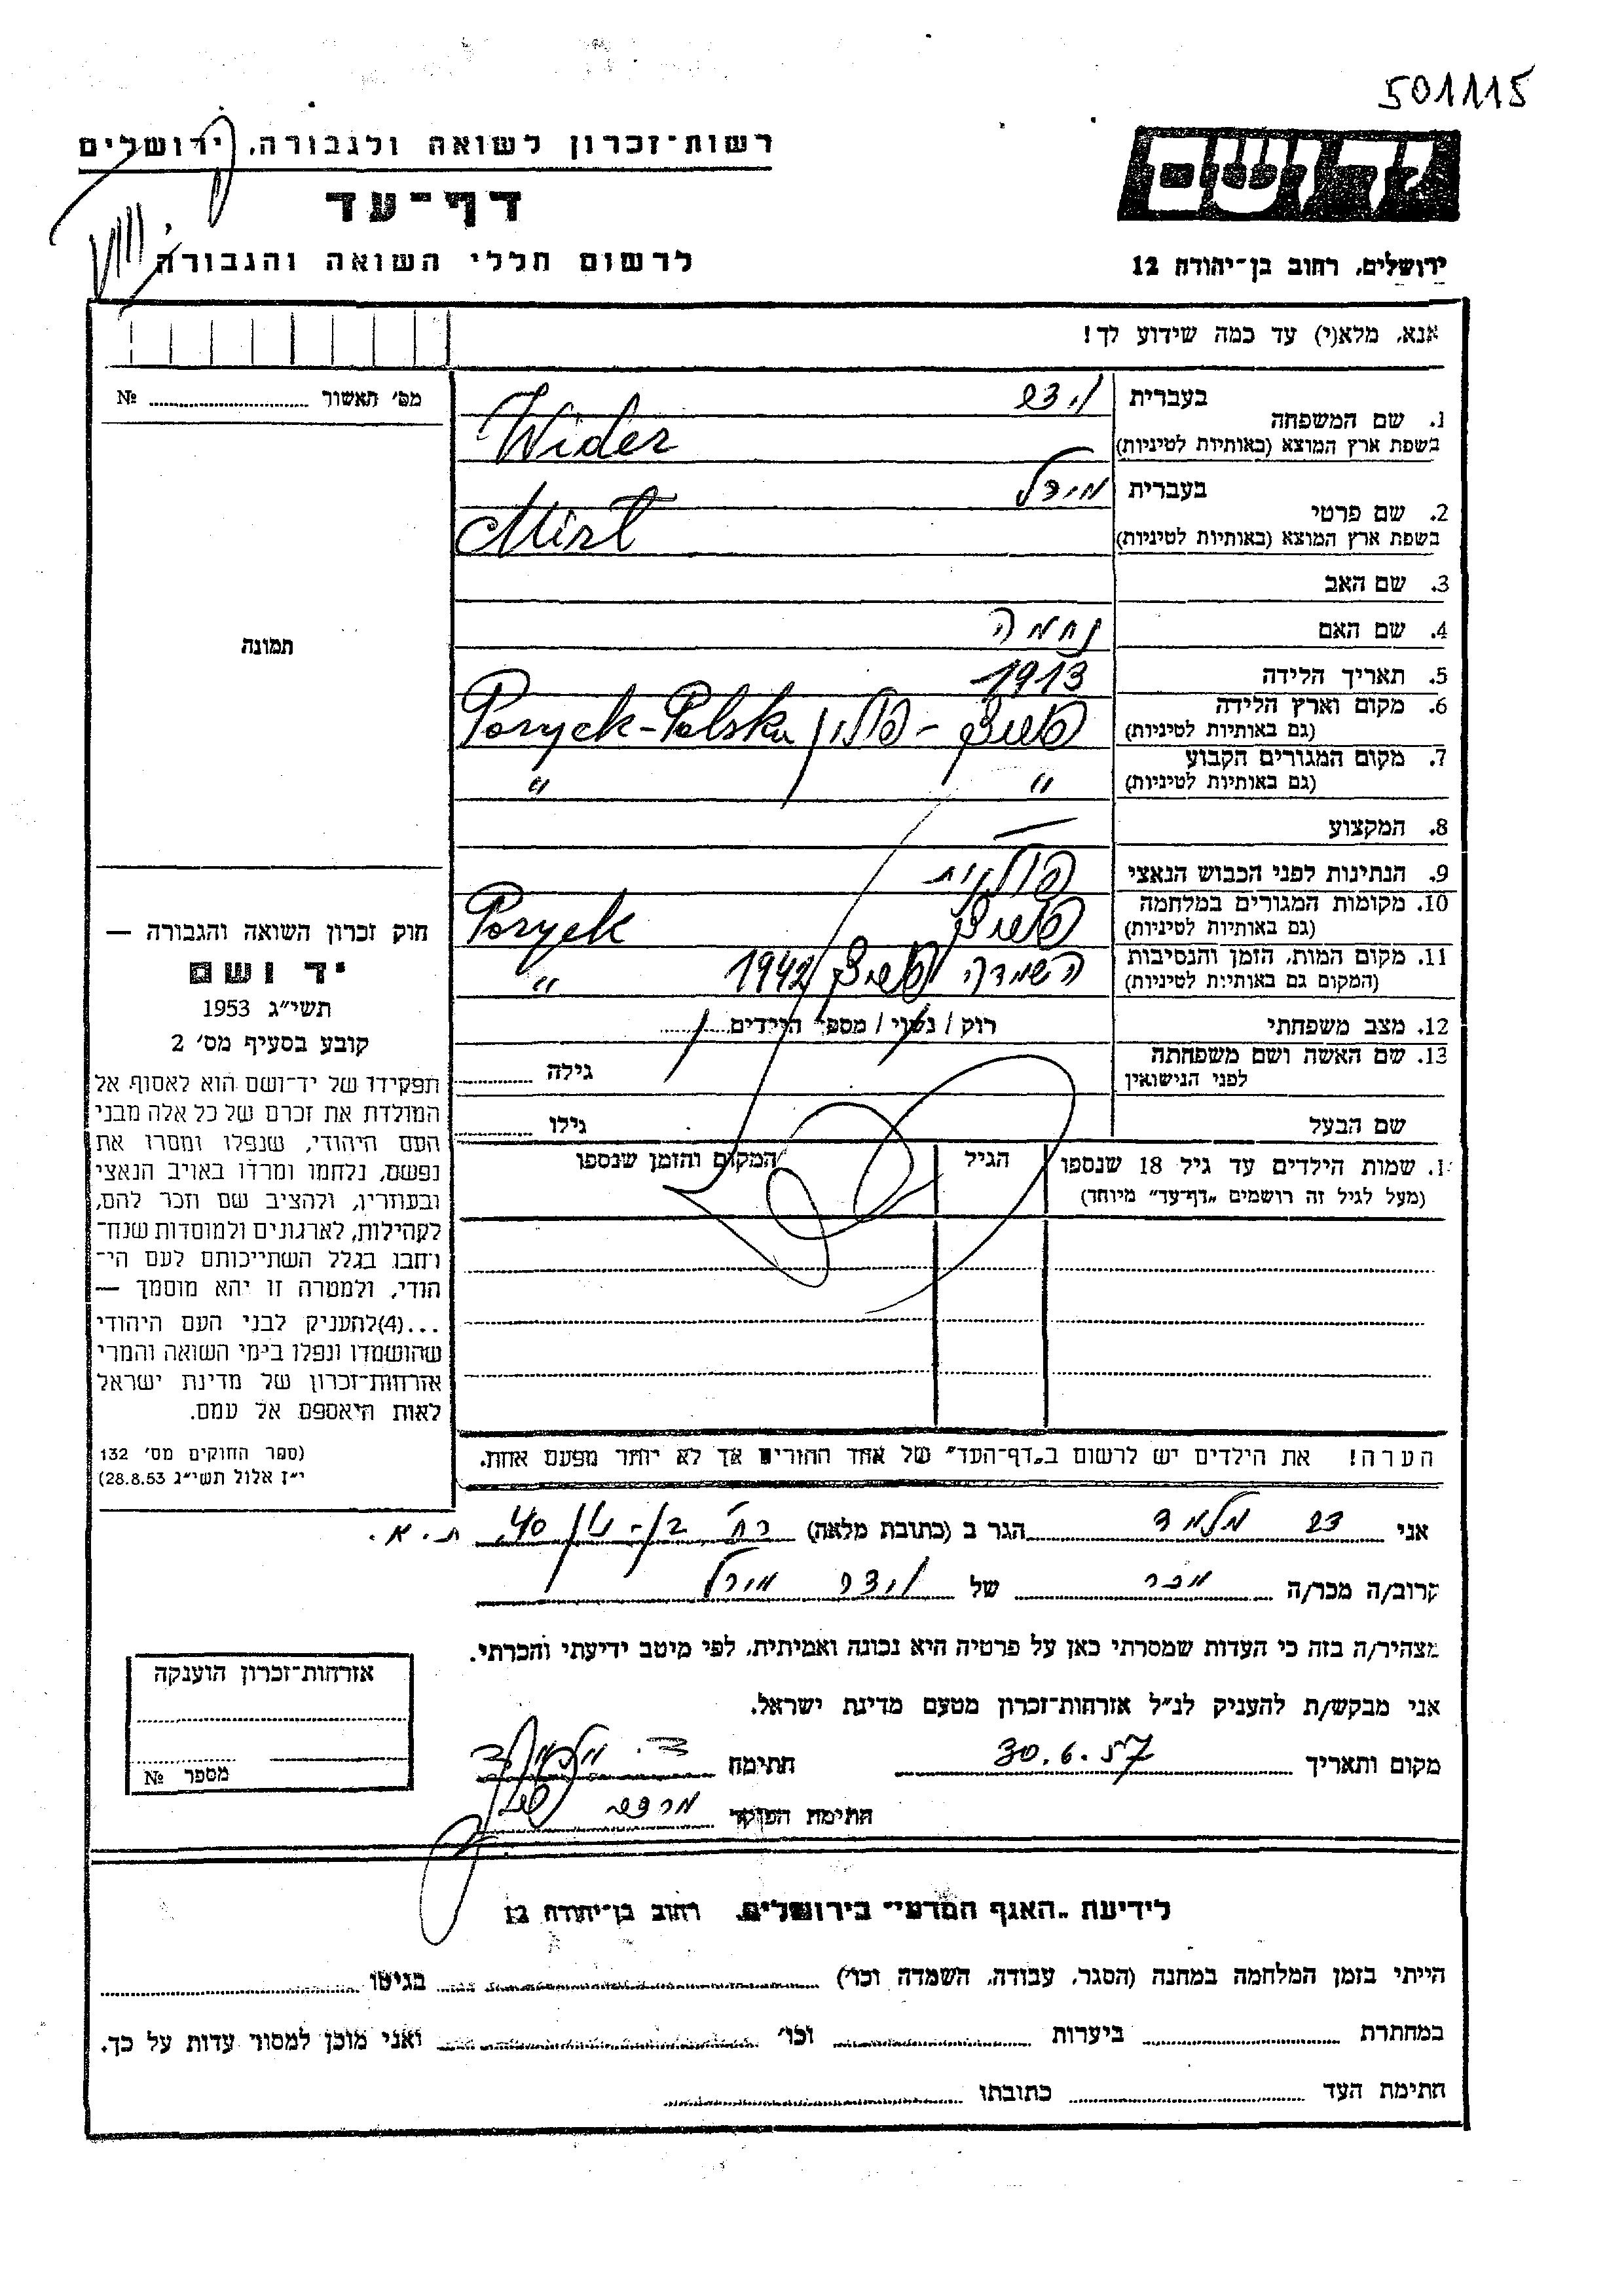 501115
יד ושם
רשות־זכרון לשואה ולגבורה, ירושלים
דף־עד
לרשום חללי השואה והגבורה
ירושלים, רחוב בן־יהודה 12
אנא, מלא(י) עד כמה שידוע לך!
מס׳ תאשור № 
1. שם המשפחה בעברית וידר
בשפת ארץ המוצא (באותיות לטיניות) Wider
2. שם פרטי בעברית מירל
בשפת ארץ המוצא (באותיות לטיניות) Mirl
3. שם האב
4. שם האם נחמה
5. תאריך הלידה 1913
6. מקום וארץ הלידה (גם באותיות לטיניות) פוריצק - פולין Poryck-Polska
7. מקום המגורים הקבוע (גם באותיות לטיניות) " "
8. המקצוע —
9. הנתינות לפני הכבוש הנאצי פולנית
10. מקומות המגורים במלחמה (גם באותיות לטיניות) פוריצק Poryck
11. מקום המות, הזמן והנסיבות (המקום גם באותיות לטיניות) השמדה פוריצק 1942 "
12. מצב משפחתי רוק / נשוי / מספר הילדים
13. שם האשה ושם משפחתה לפני הנישואין גילה
שם הבעל גילו
1. שמות הילדים עד גיל 18 שנספו
(מעל לגיל זה רושמים „דף־עד״ מיוחד)
הגיל
המקום והזמן שנספו
הערה! את הילדים יש לרשום ב„דף־העד״ של אחד ההורים אך לא יותר מפעם אחת.
תמונה
חוק זכרון השואה והגבורה —
יד ושם
תשי״ג 1953
קובע בסעיף מס׳ 2
תפקידו של יד־ושם הוא לאסוף אל
המולדת את זכרם של כל אלה מבני
העם היהודי, שנפלו ומסרו את
נפשם, נלחמו ומרדו באויב הנאצי
ובעוזריו, ולהציב שם וזכר להם,
לקהילות, לארגונים ולמוסדות שנח־
רחבו בגלל השתייכותם לעם הי־
הודי, ולמטרה זו יהא מוסמך —
...(4)להעניק לבני העם היהודי
שהושמדו ונפלו בימי השואה והמרי
אזרחות־זכרון של מדינת ישראל
לאות היאספם אל עמם.
(ספר החוקים מס׳ 132
י״ז אלול תשי״ג 28.8.53)
אני מלמד הגר ב (כתובת מלאה) רח׳ 40 ת.א.
קרוב/ה מכר/ה מכר של וידר מירל
מצהיר/ה בזה כי העדות שמסרתי כאן על פרטיה היא נכונה ואמיתית, לפי מיטב ידיעתי והכרתי.
אני מבקש/ת להעניק לנ״ל אזרחות־זכרון מטעם מדינת ישראל.
מקום ותאריך 30.6.57 חתימה
חתימת הפוקד
אזרחות־זכרון הוענקה
מספר №
לידיעת „האגף המדעי״ בירושלים, רחוב בן־יהודה 12
הייתי בזמן המלחמה במחנה (הסגר, עבודה, השמדה וכו׳) בגיטו
במחתרת ביערות וכו׳ ואני מוכן למסור עדות על כך.
חתימת העד כתובתו